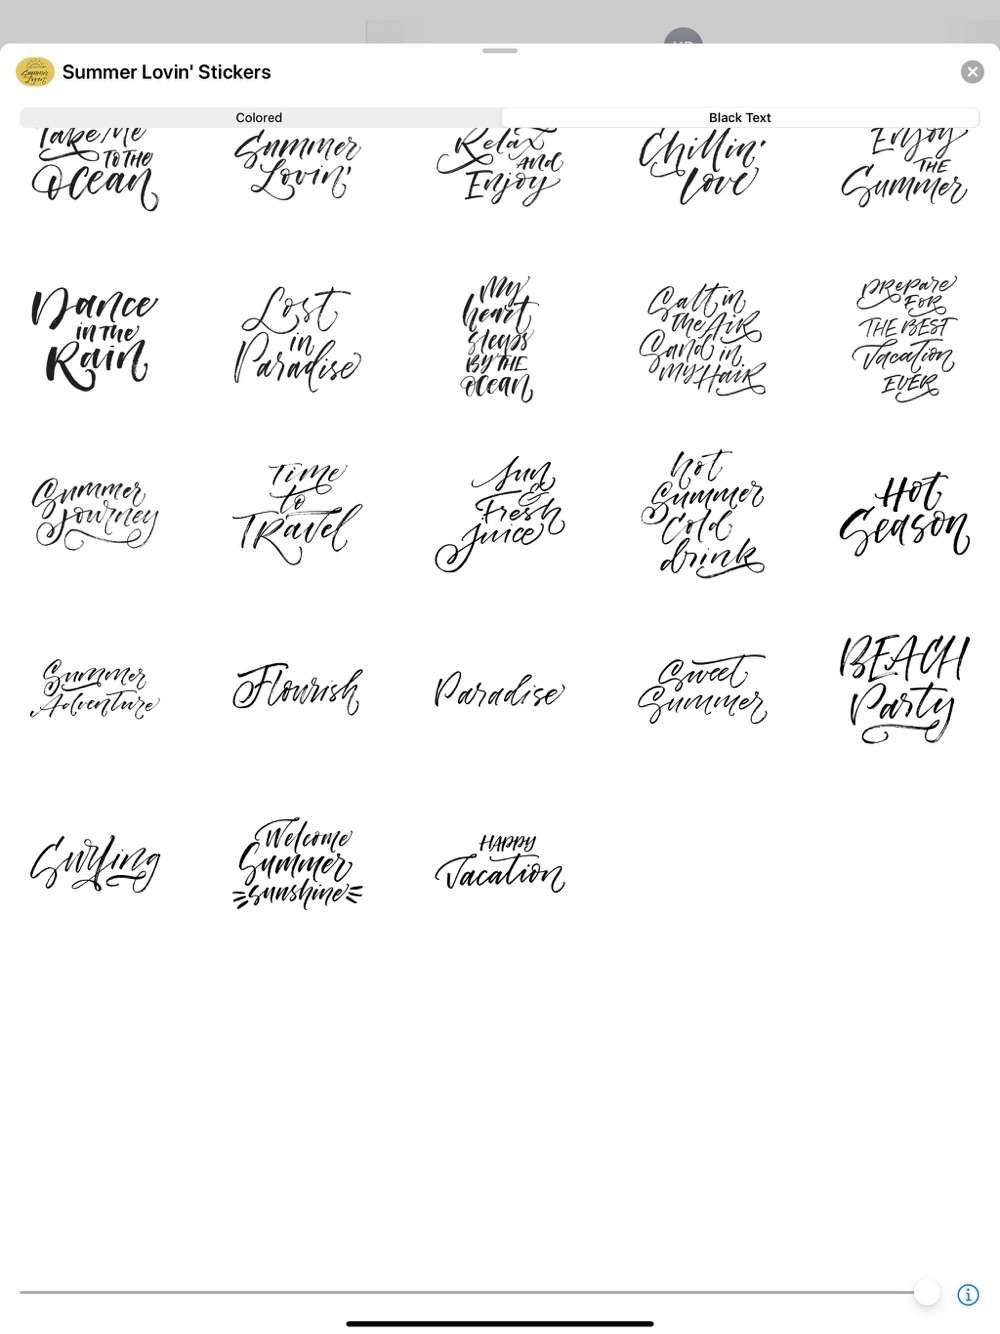 Summer Lovin' Stickers
Colored
Black Text
Take Me
TO THE
Ocean
Summer
Lovin'
Relax
AND
Enjoy
Chillin'
Love
Enjoy
THE
Summer
Dance
in the
Rain
Lost
in
Paradise
My
heart
sleeps
BY THE
ocean
Salt in
the AIR
Sand in
MY HAIR
PREPARE
FOR
THE BEST
Vacation
EVER
Summer
Journey
Time
to
TRavel
Sun
&
Fresh
juice
hot
Summer
Cold
drink
Hot
Season
Summer
Adventure
Flourish
Paradise
Sweet
Summer
BEACH
Party
Surfing
Welcome
Summer
sunshine
HAPPY
Vacation